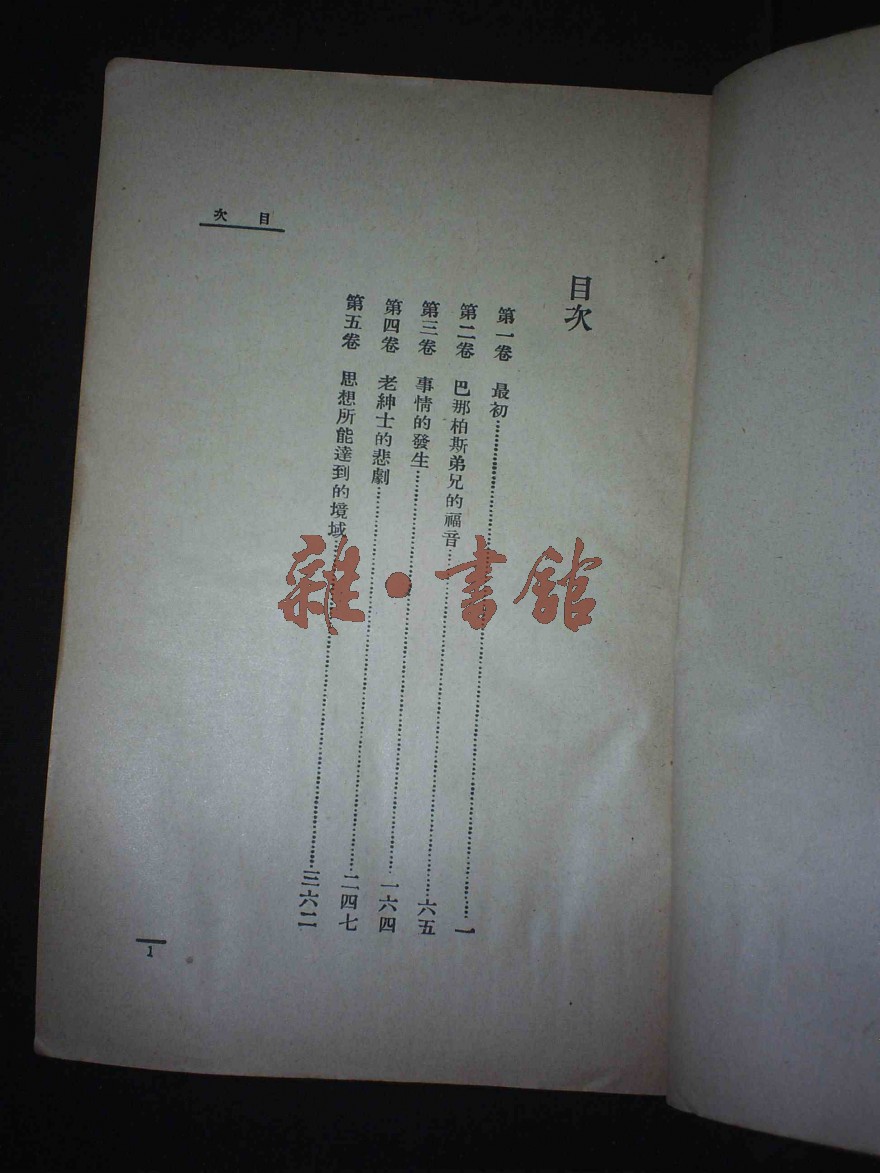 目次
目次
第一卷 最初……一
第二卷 巴那柏斯弟兄的福音……六五
第三卷 事情的發生……一六四
第四卷 老紳士的悲劇……二四七
第五卷 思想所能達到的境域……三六二
1
雜·書館